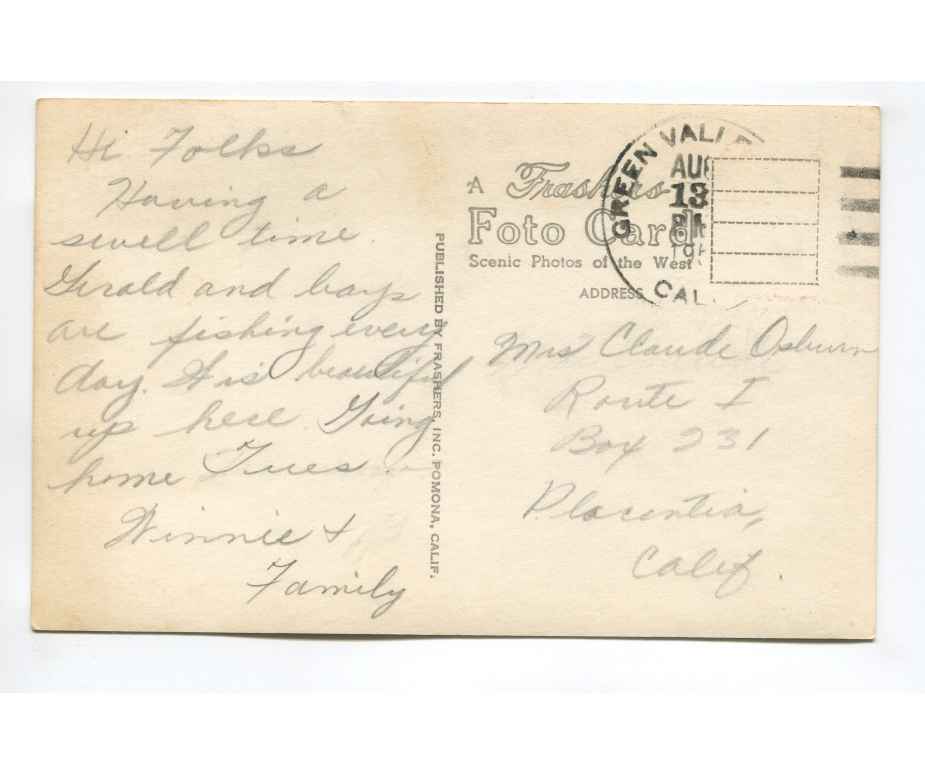 Hi Folks
Having a
swell time.
Gerald and boys
are fishing every
day. It is beautiful
up here Going
home Tues.
Winnie &
Family
PUBLISHED BY FRASHERS, INC. POMONA, CALIF.
A Frashers
Foto Card
Scenic Photos of the West
ADDRESS
GREEN VALLE
AUG
13
PM
CAL.
Mrs Claude Osburn
Route I
Box 231
Placentia,
Calif.